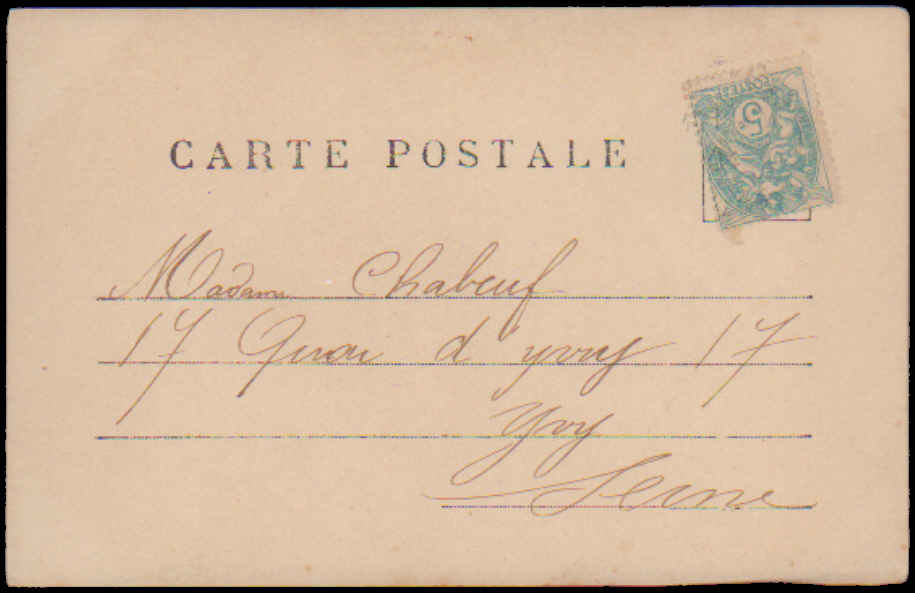 CARTE POSTALE
POSTES
5c
Madame Chabeuf
17 Quai d'yvry 17
Yvry
Seine